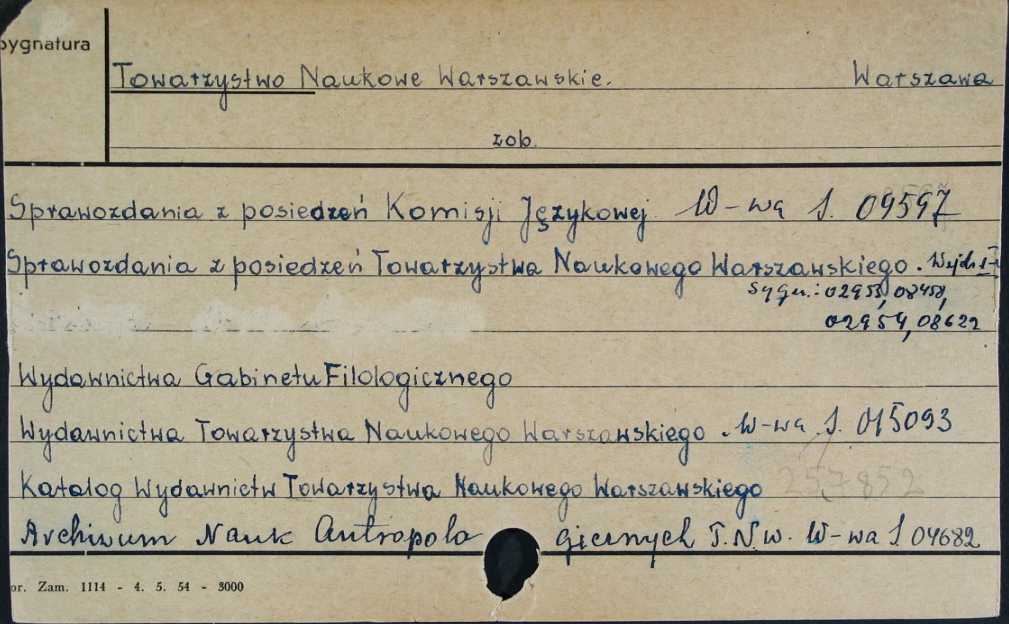 Sygnatura
Towarzystwo Naukowe Warszawskie. Warszawa
zob.
Sprawozdania z posiedzeń Komisji Językowej. W-wa S. 09597
Sprawozdania z posiedzeń Towarzystwa Naukowego Warszawskiego.
sygn.: 02953, 08458,
02954, 08622
Wydawnictwa Gabinetu Filologicznego
Wydawnictwa Towarzystwa Naukowego Warszawskiego. W-wa S. 015093
Katalog Wydawnictw Towarzystwa Naukowego Warszawskiego 257852
Archiwum Nauk Antropologicznych T.N.W. W-wa S 04682
or. Zam. 1114 - 4. 5. 54 - 3000